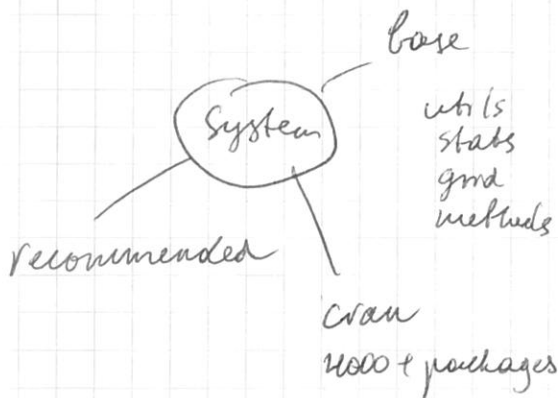 base
System
utils
stats
grid
methods
recommended
cran
4000+ packages